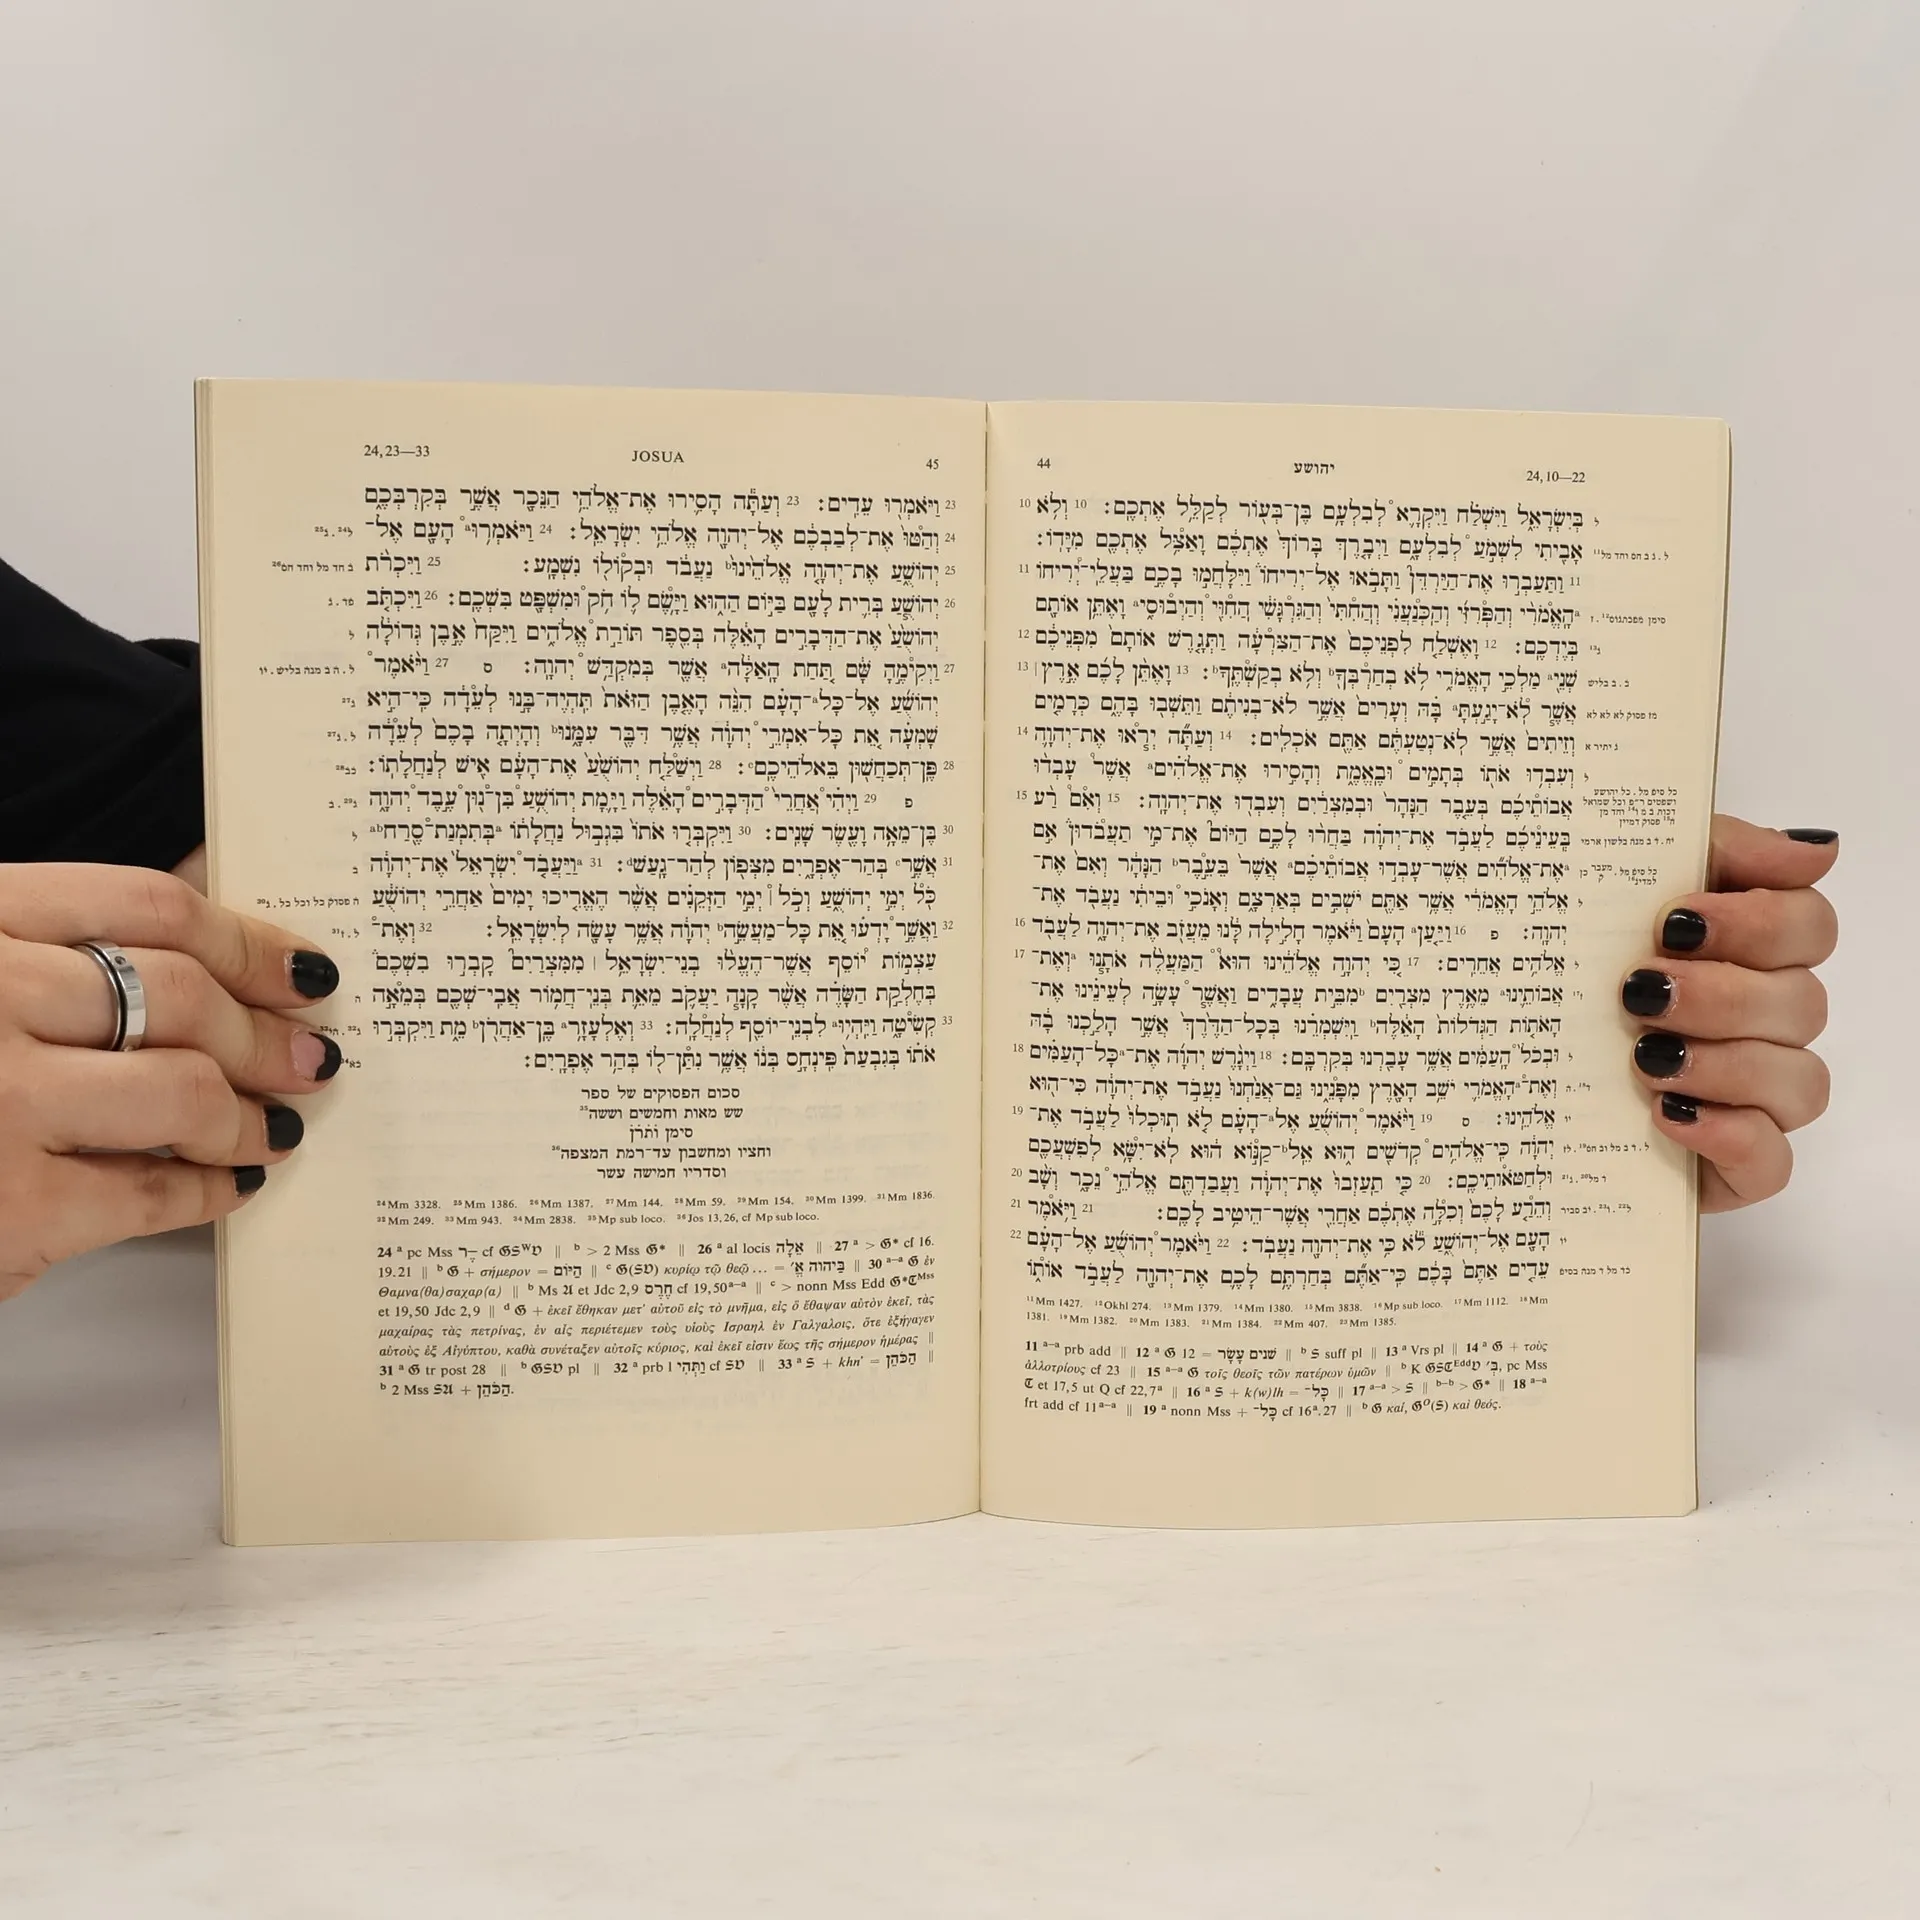 44 יהושע 24,10—22
בְּיִשְׂרָאֵל וַיִּשְׁלַח וַיִּקְרָא לְבִלְעָם בֶּן־בְּעוֹר לְקַלֵּל אֶתְכֶם׃ 10 וְלֹא 10
אָבִיתִי לִשְׁמֹעַ לְבִלְעָם וַיְבָרֶךְ בָּרוֹךְ אֶתְכֶם וָאַצִּל אֶתְכֶם מִיָּדוֹ׃
11 וַתַּעַבְרוּ אֶת־הַיַּרְדֵּן וַתָּבֹאוּ אֶל־יְרִיחוֹ וַיִּלָּחֲמוּ בָכֶם בַּעֲלֵי־יְרִיחוֹ 11
ᵃהָאֱמֹרִי וְהַפְּרִזִּי וְהַכְּנַעֲנִי וְהַחִתִּי וְהַגִּרְגָּשִׁי הַחִוִּי וְהַיְבוּסִיᵃ וָאֶתֵּן אוֹתָם
בְּיֶדְכֶם׃ 12 וָאֶשְׁלַח לִפְנֵיכֶם אֶת־הַצִּרְעָה וַתְּגָרֶשׁ אוֹתָם מִפְּנֵיכֶם 12
שְׁנֵיᵃ מַלְכֵי הָאֱמֹרִי לֹא בְחַרְבְּךָᵇ וְלֹא בְקַשְׁתֶּךָᵇ׃ 13 וָאֶתֵּן לָכֶם אֶרֶץ ׀ 13
אֲשֶׁר לֹא־יָגַעְתָּᵃ בָּהּ וְעָרִים אֲשֶׁר לֹא־בְנִיתֶם וַתֵּשְׁבוּ בָּהֶם כְּרָמִים
וְזֵיתִים אֲשֶׁר לֹא־נְטַעְתֶּם אַתֶּם אֹכְלִים׃ 14 וְעַתָּה יְראוּ אֶת־יְהוָה 14
וְעִבְדוּ אֹתוֹ בְּתָמִים וּבֶאֱמֶת וְהָסִירוּ אֶת־אֱלֹהִיםᵃ אֲשֶׁר עָבְדוּ
אֲבוֹתֵיכֶם בְּעֵבֶר הַנָּהָר וּבְמִצְרַיִם וְעִבְדוּ אֶת־יְהוָה׃ 15 וְאִם רַע 15
בְּעֵינֵיכֶם לַעֲבֹד אֶת־יְהוָה בַּחֲרוּ לָכֶם הַיּוֹם אֶת־מִי תַעֲבֹדוּן אִם
ᵃאֶת־אֱלֹהִים אֲשֶׁר־עָבְדוּ אֲבוֹתֵיכֶםᵃ אֲשֶׁר בְּעֵבֶרᵇ הַנָּהָר וְאִם אֶת־
אֱלֹהֵי הָאֱמֹרִי אֲשֶׁר אַתֶּם יֹשְׁבִים בְּאַרְצָם וְאָנֹכִי וּבֵיתִי נַעֲבֹד אֶת־
יְהוָה׃ פ 16 וַיַּעַןᵃ הָעָם וַיֹּאמֶר חָלִילָה לָּנוּ מֵעֲזֹב אֶת־יְהוָה לַעֲבֹד 16
אֱלֹהִים אֲחֵרִים׃ 17 כִּי יְהוָה אֱלֹהֵינוּ הוּא הַמַּעֲלֶה אֹתָנוּ ᵃוְאֶת־ 17
אֲבוֹתֵינוּᵃ מֵאֶרֶץ מִצְרַיִם ᵇמִבֵּית עֲבָדִים וַאֲשֶׁר עָשָׂה לְעֵינֵינוּ אֶת־
הָאֹתוֹת הַגְּדֹלוֹת הָאֵלֶּהᵇ וַיִּשְׁמְרֵנוּ בְּכָל־הַדֶּרֶךְ אֲשֶׁר הָלַכְנוּ בָהּ
וּבְכֹל הָעַמִּים אֲשֶׁר עָבַרְנוּ בְּקִרְבָּם׃ 18 וַיְגָרֶשׁ יְהוָה אֶת־ᵃכָּל־הָעַמִּים 18
וְאֶת־ᵃהָאֱמֹרִי יֹשֵׁב הָאָרֶץ מִפָּנֵינוּ גַּם־אֲנַחְנוּ נַעֲבֹד אֶת־יְהוָה כִּי־הוּא
אֱלֹהֵינוּ׃ ס 19 וַיֹּאמֶר יְהוֹשֻׁעַ אֶל־ᵃהָעָם לֹא תוּכְלוּ לַעֲבֹד אֶת־ 19
יְהוָה כִּי־אֱלֹהִים קְדֹשִׁים הוּא אֵל־ᵇקַנּוֹא הוּא לֹא־יִשָּׂא לְפִשְׁעֲכֶם
וּלְחַטֹּאותֵיכֶם׃ 20 כִּי תַעַזְבוּ אֶת־יְהוָה וַעֲבַדְתֶּם אֱלֹהֵי נֵכָר וְשָׁב 20
וְהֵרַע לָכֶם וְכִלָּה אֶתְכֶם אַחֲרֵי אֲשֶׁר־הֵיטִיב לָכֶם׃ 21 וַיֹּאמֶר 21
הָעָם אֶל־יְהוֹשֻׁעַ לֹא כִּי אֶת־יְהוָה נַעֲבֹד׃ 22 וַיֹּאמֶר יְהוֹשֻׁעַ אֶל־הָעָם 22
עֵדִים אַתֶּם בָּכֶם כִּי־אַתֶּם בְּחַרְתֶּם לָכֶם אֶת־יְהוָה לַעֲבֹד אוֹתוֹ
¹¹Mm 1427. ¹²Okhl 274. ¹³Mm 1379. ¹⁴Mm 1380. ¹⁵Mm 3838. ¹⁶Mp sub loco. ¹⁷Mm 1112. ¹⁸Mm
1381. ¹⁹Mm 1382. ²⁰Mm 1383. ²¹Mm 1384. ²²Mm 407. ²³Mm 1385.
11 ᵃ⁻ᵃ prb add ‖ 12 ᵃ 𝔊 12 = שְׁנֵים עָשָׂר ‖ ᵇ S suff pl ‖ 13 ᵃ Vrs pl ‖ 14 ᵃ 𝔊 + τοὺς
ἀλλοτρίους cf 23 ‖ 15 ᵃ⁻ᵃ 𝔊 τοῖς θεοῖς τῶν πατέρων ὑμῶν ‖ ᵇ K 𝔊S𝔗ᴱᵈᵈ𝔙 בְּ׳, pc Mss
𝔗 et 17,5 ut Q cf 22,7ᵃ ‖ 16 ᵃ S + k(w)lh = כָּל־ ‖ 17 ᵃ⁻ᵃ > S ‖ ᵇ⁻ᵇ > 𝔊* ‖ 18 ᵃ⁻ᵃ
frt add cf 11ᵃ⁻ᵃ ‖ 19 ᵃ nonn Mss + כָּל־ cf 16ᵃ.27 ‖ ᵇ 𝔊 καί, 𝔊ᴼ(S) καὶ θεός.
24,23—33 JOSUA 45
23 וַיֹּאמְרוּ עֵדִים׃ 23 וְעַתָּה הָסִירוּ אֶת־אֱלֹהֵי הַנֵּכָר אֲשֶׁר בְּקִרְבְּכֶם
24 וְהַטּוּ אֶת־לְבַבְכֶם אֶל־יְהוָה אֱלֹהֵי יִשְׂרָאֵל׃ 24 וַיֹּאמְרוּᵃ הָעָם אֶל־
25 יְהוֹשֻׁעַ אֶת־יְהוָה אֱלֹהֵינוּᵇ נַעֲבֹד וּבְקוֹלוֹ נִשְׁמָע׃ 25 וַיִּכְרֹת
26 יְהוֹשֻׁעַ בְּרִית לָעָם בַּיּוֹם הַהוּא וַיָּשֶׂם לוֹ חֹק וּמִשְׁפָּט בִּשְׁכֶם׃ 26 וַיִּכְתֹּב
יְהוֹשֻׁעַ אֶת־הַדְּבָרִים הָאֵלֶּה בְּסֵפֶר תּוֹרַת אֱלֹהִים וַיִּקַּח אֶבֶן גְּדוֹלָה
27 וַיְקִימֶהָ שָּׁם תַּחַת הָאַלָּהᵃ אֲשֶׁר בְּמִקְדַּשׁ יְהוָה׃ ס 27 וַיֹּאמֶר
יְהוֹשֻׁעַ אֶל־כָּל־ᵃהָעָם הִנֵּה הָאֶבֶן הַזֹּאת תִּהְיֶה־בָּנוּ לְעֵדָה כִּי־הִיא
שָׁמְעָה אֵת כָּל־אִמְרֵי יְהוָה אֲשֶׁר דִּבֶּר עִמָּנוּᵇ וְהָיְתָה בָכֶם לְעֵדָה
28 פֶּן־תְּכַחֲשׁוּן בֵּאלֹהֵיכֶםᶜ׃ 28 וַיְשַׁלַּח יְהוֹשֻׁעַ אֶת־הָעָם אִישׁ לְנַחֲלָתוֹ׃
פ 29 וַיְהִי אַחֲרֵי הַדְּבָרִים הָאֵלֶּה וַיָּמָת יְהוֹשֻׁעַ בִּן־נוּן עֶבֶד יְהוָה
30 בֶּן־מֵאָה וָעֶשֶׂר שָׁנִים׃ 30 וַיִּקְבְּרוּ אֹתוֹ בִּגְבוּל נַחֲלָתוֹ ᵃבְּתִמְנַת־סֶרַחᵃᵇ
31 אֲשֶׁרᶜ בְּהַר־אֶפְרָיִם מִצְּפוֹן לְהַר־גָּעַשׁᵈ׃ 31 ᵃוַיַּעֲבֹד יִשְׂרָאֵל אֶת־יְהוָה
כֹּל יְמֵי יְהוֹשֻׁעַ וְכֹל ׀ יְמֵי הַזְּקֵנִים אֲשֶׁר הֶאֱרִיכוּ יָמִים אַחֲרֵי יְהוֹשֻׁעַ
32 וַאֲשֶׁר יָדְעוּ אֵת כָּל־מַעֲשֵׂהᵇ יְהוָה אֲשֶׁר עָשָׂה לְיִשְׂרָאֵל׃ 32 וְאֶת־
עַצְמוֹת יוֹסֵף אֲשֶׁר־הֶעֱלוּ בְנֵי־יִשְׂרָאֵל ׀ מִמִּצְרַיִם קָבְרוּ בִשְׁכֶם
בְּחֶלְקַת הַשָּׂדֶה אֲשֶׁר קָנָה יַעֲקֹב מֵאֵת בְּנֵי־חֲמוֹר אֲבִי־שְׁכֶם בְּמֵאָה
33 קְשִׂיטָה וַיִּהְיוּᵃ לִבְנֵי־יוֹסֵף לְנַחֲלָה׃ 33 וְאֶלְעָזָרᵃ בֶּן־אַהֲרֹןᵇ מֵת וַיִּקְבְּרוּ
אֹתוֹ בְּגִבְעַת פִּינְחָס בְּנוֹ אֲשֶׁר נִתַּן־לוֹ בְּהַר אֶפְרָיִם׃
סכום הפסוקים של ספר
שש מאות וחמשים וששה³⁵
סימן וֹתֹרֹןֹ
וחציו ומחשבון עד־רמת המצפה³⁶
וסדריו חמישה עשר
²⁴Mm 3328. ²⁵Mm 1386. ²⁶Mm 1387. ²⁷Mm 144. ²⁸Mm 59. ²⁹Mm 154. ³⁰Mm 1399. ³¹Mm 1836.
³²Mm 249. ³³Mm 943. ³⁴Mm 2838. ³⁵Mp sub loco. ³⁶Jos 13,26, cf Mp sub loco.
24 ᵃ pc Mss ־ֶר cf 𝔊Sᵂ𝔙 ‖ ᵇ > 2 Mss 𝔊* ‖ 26 ᵃ al locis אֵלָה ‖ 27 ᵃ > 𝔊* cf 16.
19.21 ‖ ᵇ 𝔊 + σήμερον = הַיּוֹם ‖ ᶜ 𝔊(S𝔙) κυρίῳ τῷ θεῷ ... = בַּיהוה אֱ׳ ‖ 30 ᵃ⁻ᵃ 𝔊 ἐν
Θαμνα(θα)σαχαρ(α) ‖ ᵇ Ms 𝔄 et Jdc 2,9 חֶרֶס cf 19,50ᵃ⁻ᵃ ‖ ᶜ > nonn Mss Edd 𝔊*𝔗ᴹˢˢ
et 19,50 Jdc 2,9 ‖ ᵈ 𝔊 + ἐκεῖ ἔθηκαν μετ᾽ αὐτοῦ εἰς τὸ μνῆμα, εἰς ὃ ἔθαψαν αὐτὸν ἐκεῖ, τὰς
μαχαίρας τὰς πετρίνας, ἐν αἷς περιέτεμεν τοὺς υἱοὺς Ισραηλ ἐν Γαλγαλοις, ὅτε ἐξήγαγεν
αὐτοὺς ἐξ Αἰγύπτου, καθὰ συνέταξεν αὐτοῖς κύριος, καὶ ἐκεῖ εἰσιν ἕως τῆς σήμερον ἡμέρας ‖
31 ᵃ 𝔊 tr post 28 ‖ ᵇ 𝔊S𝔙 pl ‖ 32 ᵃ prb l וַתְּהִי cf S𝔙 ‖ 33 ᵃ S + khnʾ = הַכֹּהֵן ‖
ᵇ 2 Mss S𝔄 + הַכֹּהֵן.